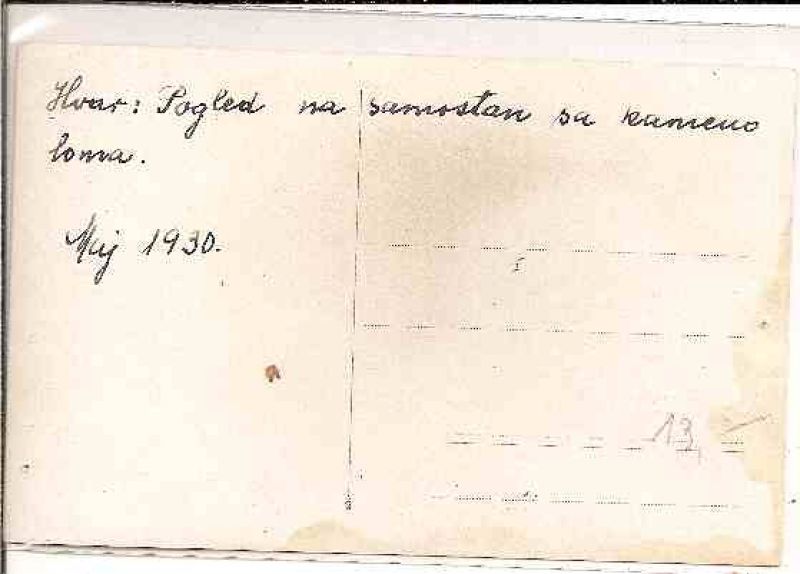 Hvar: Pogled na samostan sa kameno
loma.
Maj 1930.
13